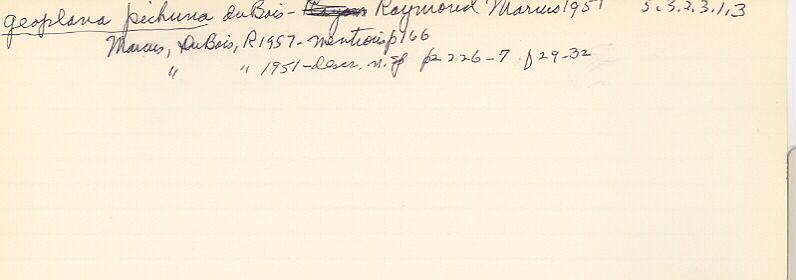 geoplana pichuna duBois- Raymond Marcus 1951 5.3.2.3.1,3
Marcus, DuBois, R 1957-mentions p166
" " 1951-descr. n. sp p 226-7 f 29-32